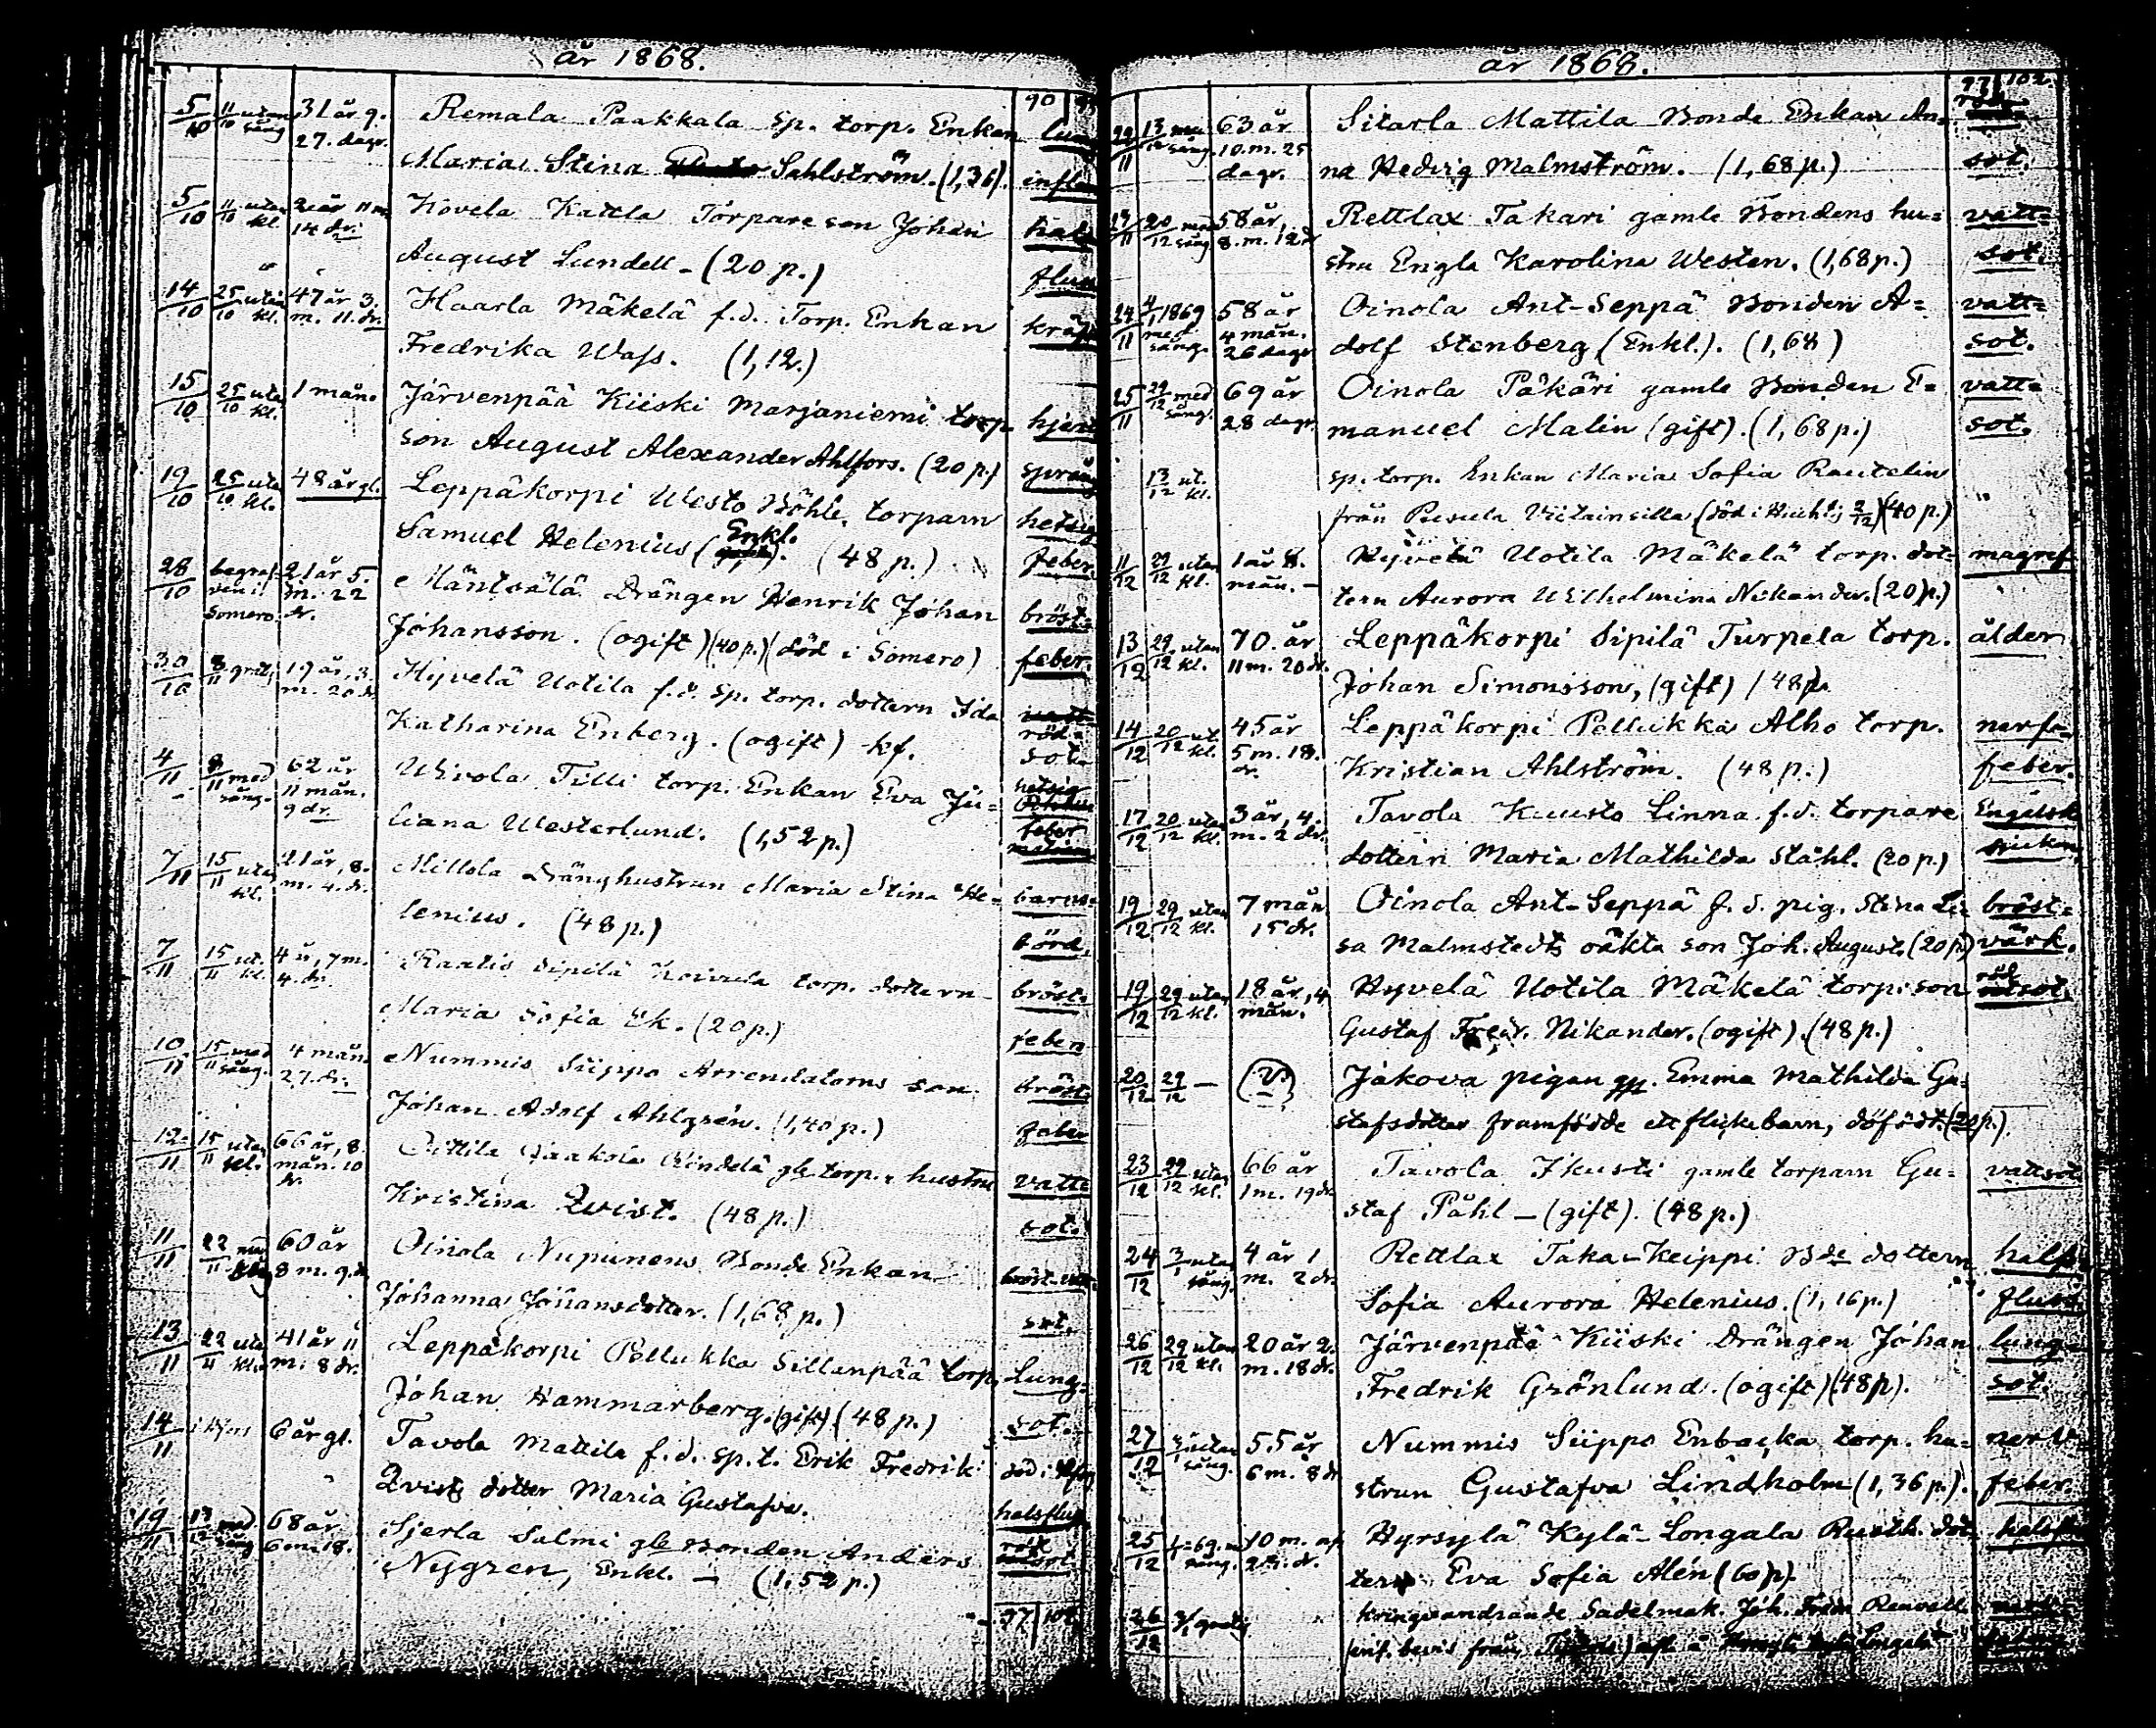 år 1868.
90
5/10 11/10 utan sång 31 år 9. Remala Paakkala sp. torp. Enkan lung
27. dagr. Maria Stina Sahlström. (1,36). infla
5/10 11/10 utan kl. 2 år 11 m. Hovela Kattla Torpare son Johan hals
14 dr. August Lundell - (20 p.) fluss
14/10 25/10 utan kl. 47 år 3. Haarla Mäkelä f.d. Torp. Enkan kräf
m. 11. dr. Fredrika Wass. (1,12.)
15/10 25/10 utan kl. 1 mån. Järvenpää Kiiski Marjaniemi torp hjert
son August Alexander Ahlfors. (20 p.) språng
19/10 25/10 utan kl. 48 år gl. Leppäkorpi Westo Böhle, torparn hetsig
Samuel Helenius (Enkl.). (48 p.) feber.
28/10 begraf- 21 år 5. Mäntsälä Drängen Henrik Johan bröst-
ven i Somero. m. 22 dr. Johansson. (ogift) (40 p.) (död i Somero) feber.
30/10 8/11 gratis 19 år, 3. Hyvelä Uotila f.d. sp. torp. dottern Ida röd-
m. 20 dr. Katharina Enberg. (ogift) kf. sot.
4/11 8/11 med sång. 62 år Uivola Tilli torp. Enkan Eva Ju= hetsig
11 mån. 9 dr. liana Westerlund. (1,52 p.) feber
7/11 15/11 utan kl. 21 år, 8. Millola Dränghustrun Maria Stina He- barns-
m. 4. dr. lenius. (48 p.) börd.
7/11 15/11 ut. kl. 4 år, 7 m. Raatis Sipilä Koivula torp. dottern bröst-
4. dr. Maria Sofia Ek. (20 p.) feber
10/11 15/11 med sång. 4 mån. Nummis Siippo Arrendatorns son bröst-
27. dr. Johan Adolf Ahlgrén. (1,40 p.) feber
12/11 15/11 utan kl. 66 år, 8. Jaakola gle torp. hustru vatt-
mån. 10 dr. Kristina Qvist. (48 p.) sot.
11/11 22/11 60 år Oinola Nupunens Bonde Enkan bröst-vatt
8 m. 9. dr. Johanna Johansdotter. (1,68 p.) sot.
13/11 22/11 utan kl. 41 år 11 Leppäkorpi Pellukka Sillanpää torp. Lung-
m. 8 dr. Johan Hammarberg. (gift) (48 p.) sot.
14/11 6 år gl. Tavola Mattila f.d. sp. t. Erik Fredrik död i
Qvists dotter Maria Gustafva. halsfluss
19/11 13/12 med sång 68 år Sjerla Salmi gle Bonden Anders rödsot.
6 m. 18. Nygren, Enkl. - (1,52 p.)
97 102
år 1868.
97 102.
29/11 13/12 med sång. 63 år Sitarla Mattila Bonde Enkan An=
10. m. 25 dagr. na Hedvig Malmström. (1,68 p.) sot.
17/11 20/12 med sång 58 år, Rettlax Takari gamle Bondens hu= vatt=
8. m. 12 dr stru Engla Karolina Westen. (1,68 p.) sot.
24/11 4/1 1869 58 år Oinola Ant-Seppä Bonden A= vatt=
med sång. 4 mån. 26 dagr dolf Stenberg (Enkl.). (1,68) sot.
25/11 29/12 med sång. 69 år Oinola Päkäri gamle Bonden E= vatt=
28 dagr. manuel Malin (gift). (1,68 p.) sot.
13/12 ut. kl. sp. torp. Enkan Maria Sofia Rautelin
från Pusula Viitainsilla (död i Wichtis 2/12) (40 p.)
11/12 29/12 utan kl. 1 år 8. Hyvelä Uotila Mäkelä torp. dot- magref
mån. - tern Aurora Wilhelmina Nikander. (20 p.)
13/12 29/12 utan kl. 70. år Leppäkorpi Sipilä Turpela torp. ålder
11 m. 20 dr. Johan Simonsson, (gift) (48 p.
14/12 20/12 ut. kl. 45 år Leppäkorpi Pellukka Alho torp. nerf-
5 m. 18. dr. Kristian Ahlström. (48 p.) feber.
17/12 20/12 utan kl. 3 år, 4. Tavola Kuusto Linna f.d. torpare Engelsk
m. 2 dr. dottern Maria Mathilda Ståhl. (20 p.) sjukan
19/12 29/12 utan kl. 7 mån Oinola Ant-Seppä f.d. pig. Stina Li- bröst-
15 dr. sa Malmstedts oäkta son Joh. August. (20 p) värk.
19/12 29/12 utan kl. 18 år, 4 Hyvelä Uotila Mäkelä torp. son röd
mån. Gustaf Fredr. Nikander. (ogift). (48 p.) sot.
20/12 29/12 - (v.) Jakova pigan Emma Mathilda Gu-
stafsdotter framfödde ett flickebarn, dödfödt. (20 p.)
23/12 29/12 utan kl. 66 år Tavola Ikusti gamle torparn Gu= vattsot
1 m. 19 dr. staf Påhl - (gift). (48 p.)
24/12 3/1 utan sång. 4 år 1 Rettlax Taka-Keippi Bde dottern hals-
m. 2 dr. Sofia Aurora Helenius. (1,16 p.) fluss.
26/12 29/12 utan kl. 20 år 2. Järvenpää Kiiski Drängen Johan lung-
m. 18 dr. Fredrik Grönlund. (ogift) (48 p). sot.
27/12 3/1 utan sång. 55 år Nummis Siippo Enbacka torp. hu= nerv-
6 m. 8 dr strun Gustafva Lindholm (1,36 p.). feber.
25/12 10 m. Hyrsylä Kylä-Longala Rusth. dot- halsfl
sång. dr. tern Eva Sofia Alén (60 p).
26/12 3/1 gratis Kringvandrande Sadelmak. Joh. Renvall
enl. bevis från